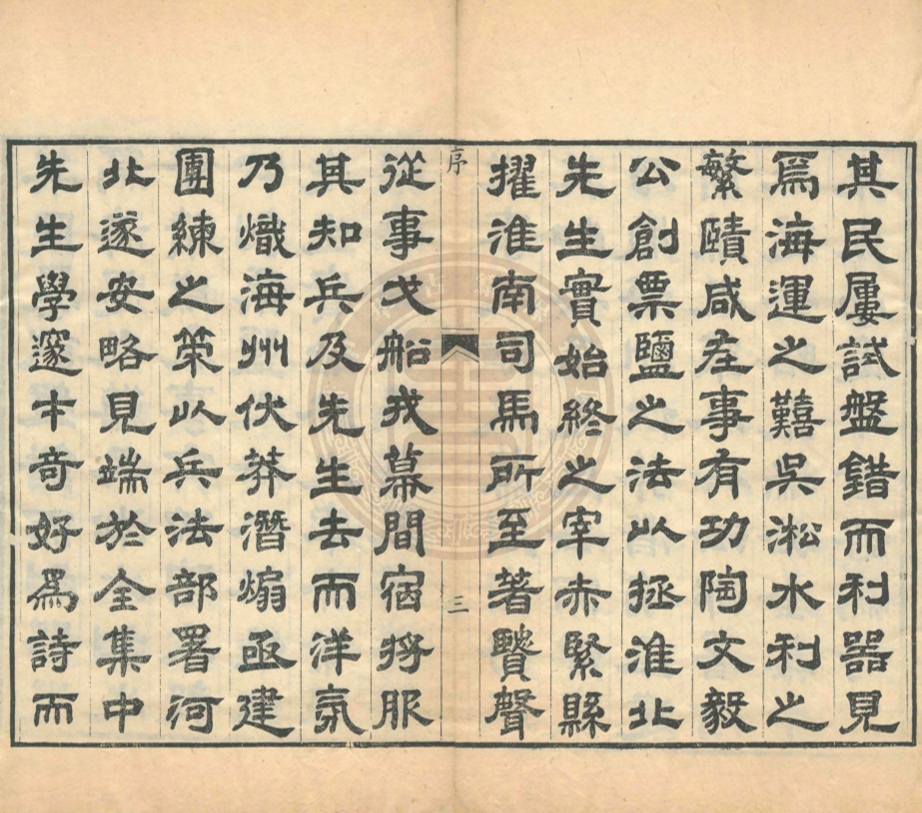 其民屢試盤錯而利器見
爲海運之囏吳淞水利之
繁賾咸在事有功陶文毅
公創票鹽之法以拯淮北
先生實始終之宰赤緊縣
擢淮南司馬所至著賢聲
序
三
從事戈船戎幕間宿將服
其知兵及先生去而洋氛
乃熾海州伏莽潛煽亟建
團練之策以兵法部署河
北遂安略見端於全集中
先生學邃才奇好爲詩而